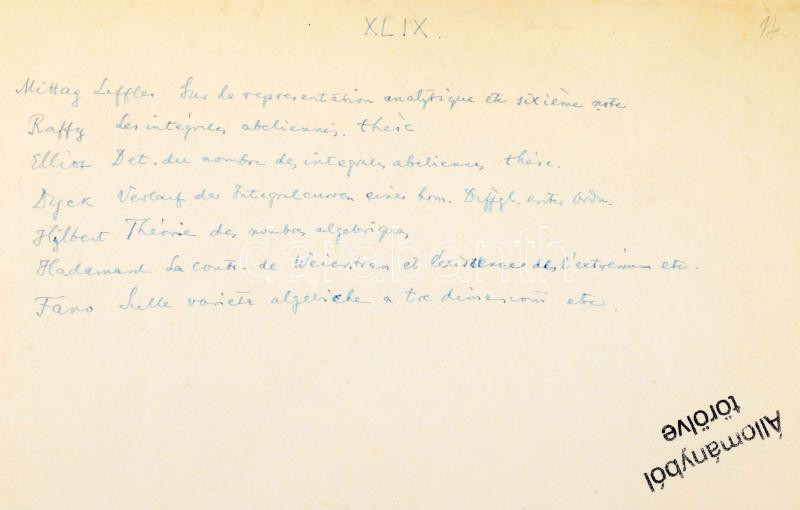 XLIX.
Mittag Leffler Sur la representation analytique etc sixième note
Raffy Les intégrales abeliennes. thèse
Elliot Det. du nombre des integrales abeliennes thèse.
Dyck Verlauf der Integralcurven eines hom. Diffgl. erster Ordn.
Hilbert Théorie des nombres algebriques
Hadamard La contr. de Weierstrass et l'existence de l'extrémum etc.
Fano Sulle varietà algebriche a tre dimensioni etc.
darabanth
Állományból
törölve